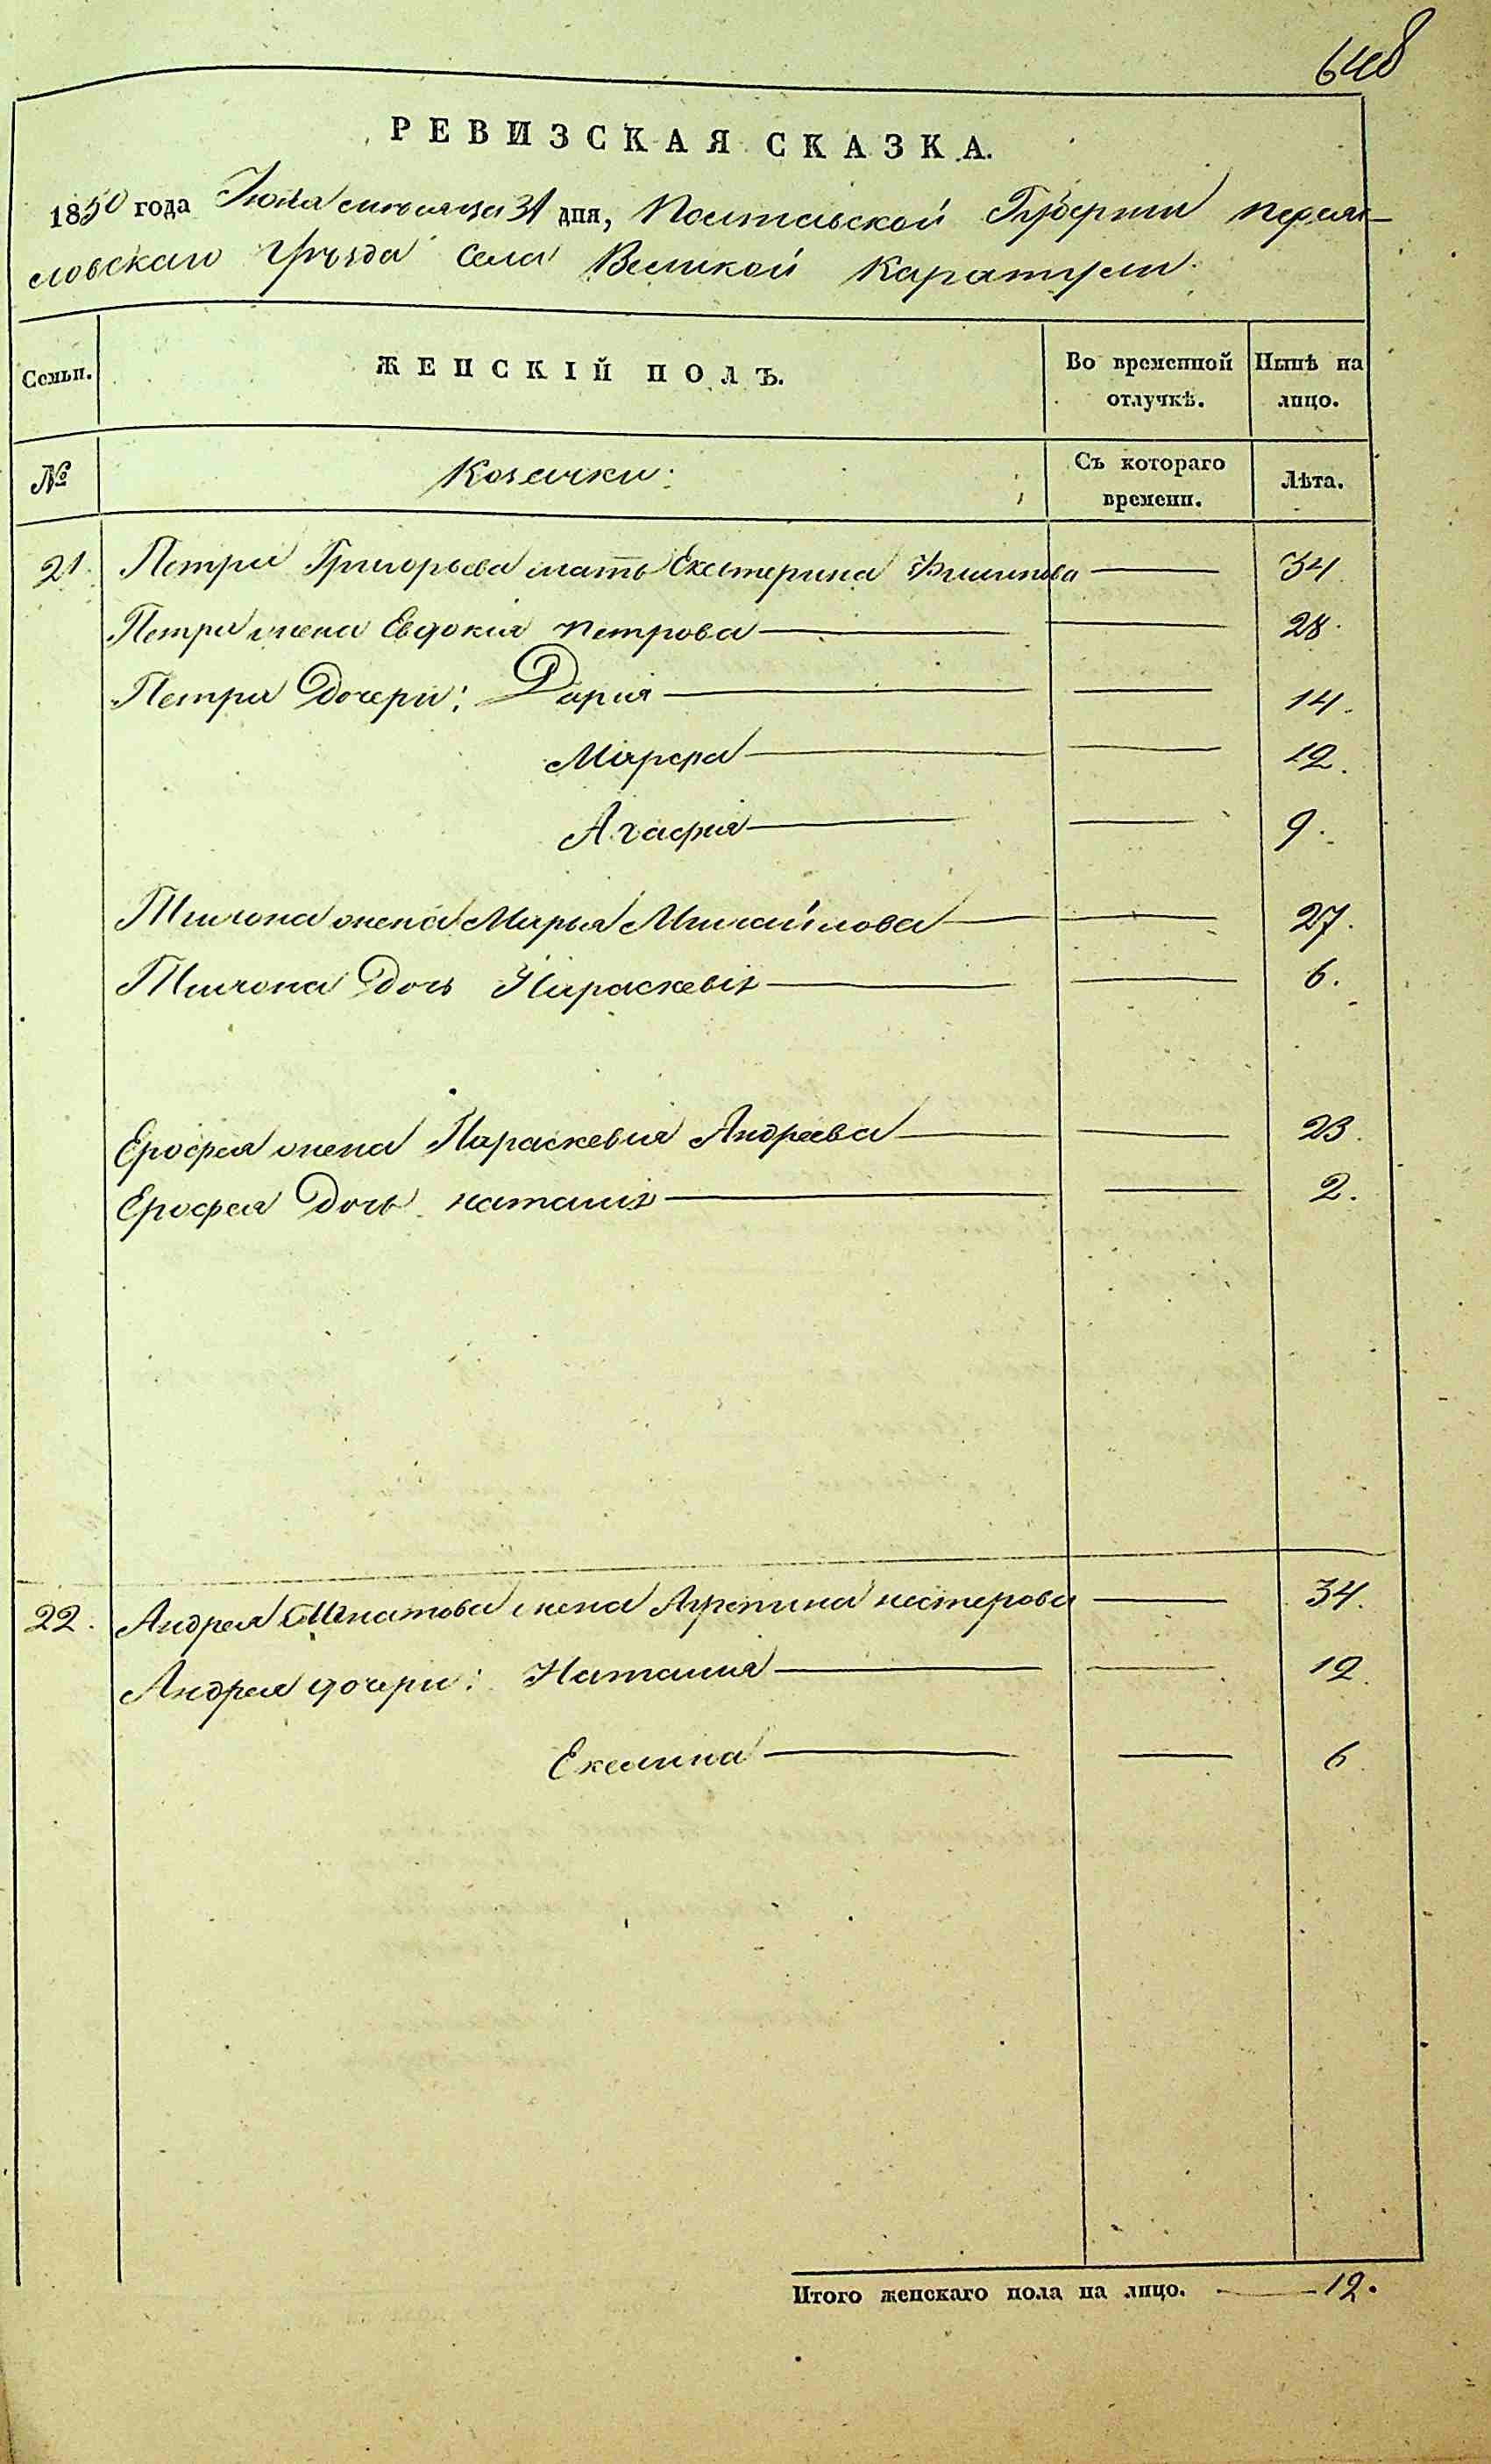 648
РЕВИЗСКАЯ СКАЗКА.
1850 года Июля месяца 31 дня, Полтавской Губернии Переяс-
ловскаго Уѣзда Села Великой Каратули.
Семьи.
ЖЕНСКІЙ ПОЛЪ.
Во временной отлучкѣ.
Нынѣ на лицо.
№
Козачки:
Съ котораго времени.
Лѣта.
21. Петра Григорьева мать Екатерина Филипова 34.
Петра жена Евдокия Петрова 28.
Петра Дочери: Дария 14.
Марфа 12.
Агафия 9.
Тихона жена Марья Михайлова 27.
Тихона Дочь Параскевія 6.
Ерофея жена Параскевия Андреева 23.
Ерофея Дочь наталія 2.
22. Андрея жена нестерова 34.
Андрея дочери: Наталия 12.
6.
Итого женскаго пола на лицо. 12.